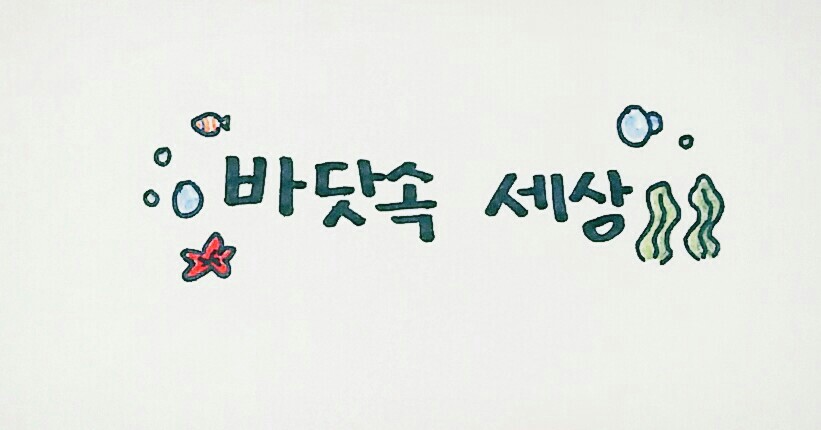 바닷속 세상